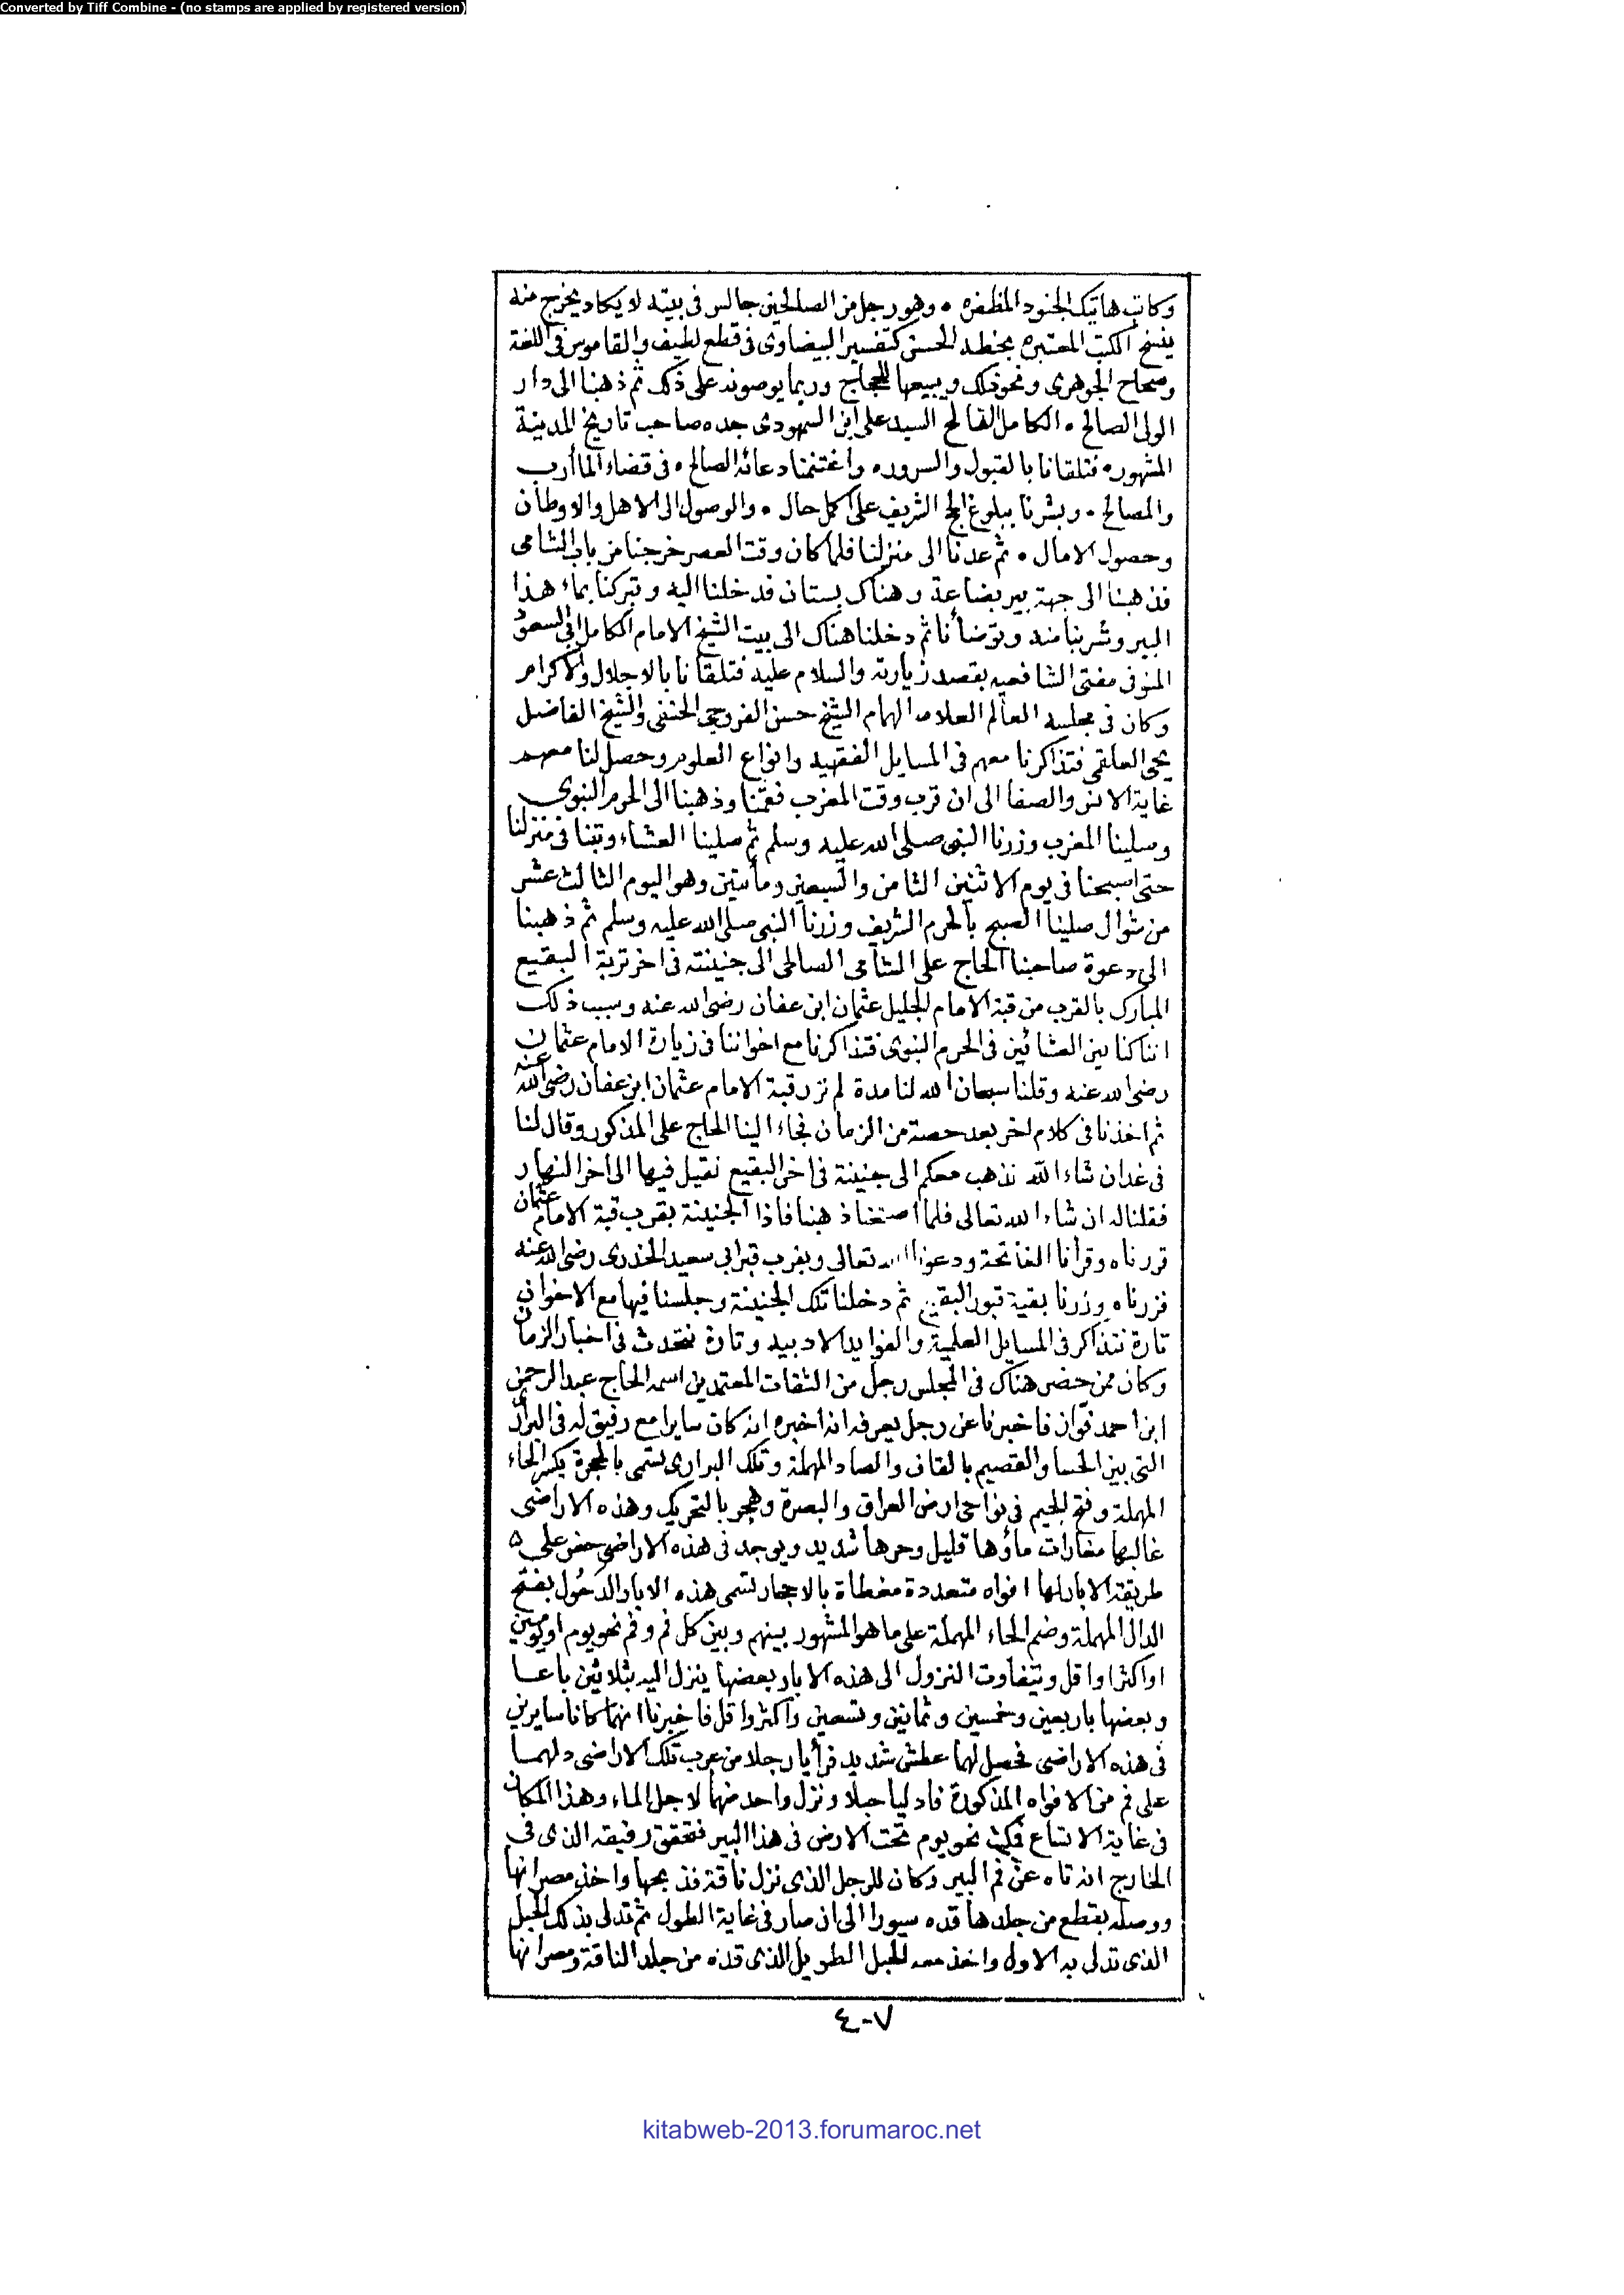 Converted by Tiff Combine - (no stamps are applied by registered version)
وكاتب هاتيك الجنود المظفره • وهو رجل من الصالحين جالس فى بيته لا يكاد يخرج منه
ينسخ الكتب المعتبره بخطه الحسن كتفسير البيضاوى فى قطع لطيف والقاموس فى اللغة
وصحاح الجوهرى ونحو ذلك ويبيعها للحجاج وربما يوصونه على ذلك ثم ذهبنا الى دار
الولى الصالح • الكامل الفالح السيد على ابن السمهودى جده صاحب تاريخ المدينة
المشهوره فتلقانا بالقبول والسرور • واغتنمنا دعائه الصالح • فى قضاء المأارب
والمصالح • وبشرنا ببلوغ الحج الشريف على اكمل حال • والوصول الى الاهل والاوطان
وحصول الامال • ثم عدنا الى منزلنا فلما كان وقت العصر خرجنا من باب الشامى
فذهبنا الى جهة بير بضاعة وهناك بستان فدخلنا اليه وتبركنا بماء هذا
البير وشربنا منه وتوضأنا ثم دخلنا هناك الى بيت الشيخ الامام الكامل ابى السعود
المنوفى مفتى الشافعيه بقصد زيارته والسلام عليه فتلقانا بالاجلال والاكرام
وكان فى مجلسه العالم العلامه الهمام الشيخ حسن الفروجى الحنفى والشيخ الفاضل
يحيى العلقمى فتذاكرنا معهم فى المسايل الفقهيه وانواع العلوم وحصل لنا معهم
غاية الانس والصفا الى ان قرب وقت المغرب فقمنا وذهبنا الى الحرم النبوى
وصلينا المغرب وزرنا النبى صلى الله عليه وسلم ثم صلينا العشاء وبتنا فى منزلنا
حتى اصبحنا فى يوم الاثنين الثامن والسبعين ومأيتين وهو اليوم الثالث عشر
من شوال صلينا الصبح بالحرم الشريف وزرنا النبى صلى الله عليه وسلم ثم ذهبنا
الى دعوة صاحبنا الحاج على الشامى الصالحى الى جنينته فى اخر تربة البقيع
المبارك بالقرب من قبة الامام الجليل عثمان ابن عفان رضى الله عنه وسبب ذلك
اننا كنا بين العشائين فى الحرم النبوى فتذاكرنا مع اخواننا فى زيارة الامام عثمان
رضى الله عنه وقلنا سبحان الله لنا مدة لم نزر قبة الامام عثمان ابن عفان رضى الله عنه
ثم اخذنا فى كلام اخر بعد حصة من الزمان فجاء الينا الحاج على المذكور وقال لنا
فى غد ان شاء الله نذهب معكم الى جنينة فى اخر البقيع نقيل فيها الى اخر النهار
فقلنا له ان شاء الله تعالى فلما اصبحنا ذهبنا فاذا الجنينة بقرب قبة الامام عثمان
فزرناه وقرأنا الفاتحة ودعونا الله تعالى وبقرب قبر ابى سعيد الخدرى رضى الله عنه
فزرناه وزرنا بقية قبور البقيع ثم دخلنا تلك الجنينة وجلسنا فيها مع الاخوان
تارة نتذاكر فى المسايل العلمية والفوايد الادبيه وتارة نتحدث فى اخبار الزمان
وكان ممن حضر هناك فى المجلس رجل من الثقات المعتمدين اسمه الحاج عبد الرحمن
ابن احمد فوّاز فاخبرنا عن رجل يعرفه انه اخبره انه كان سايرا مع رفيق له فى البرارى
التى بين الحسا والقصيم بالقاف والصاد المهملة وتلك البرارى تسمى بالحجرة بكسر الحاء
المهملة وفتح الجيم فى نواحى ارض العراق والبصرة وهجر بالتحريك وهذه الاراضى
غالبها مغارات ماؤها قليل وحرها شديد ويوجد فى هذه الاراضى حفر على
طريقة الابار لها افواه متعددة مغطاة بالاحجار تسمى هذه الابار الدحُول بفتح
الدال المهملة وضم الحاء المهملة على ما هو المشهور بينهم وبين كل فم وفم نحو يوم او يومين
او اكثر او اقل ويتفاوت النزول الى هذه الابار بعضها ينزل اليه بثلاثين باعا
وبعضها باربعين وخمسين وثمانين وتسعين واكثر واقل فاخبرنا انهما كانا سايرين
فى هذه الاراضى فحصل لهما عطش شديد فرأيا رجلا من عرب تلك الاراضى دلهما
على فم من الافواه المذكورة فادليا حبلا ونزل واحد منهما لاجل الماء وهذا المكان
فى غاية الاتساع فمكث نحو يوم تحت الارض فى هذا البير فتحقق رفيقه الذى فى
الخارج انه تاه عن فم البير وكان للرجل الذى نزل ناقة فذبحها واخذ مصرانها
ووصله بقطع من جلدها قده سيورا الى ان صار فى غاية الطول ثم تدلى بذلك الحبل
الذى تدلى به الاول واخذ معه الحبل الطويل الذى قده من جلد الناقة ومصرانها
٤٠٧
kitabweb-2013.forumaroc.net